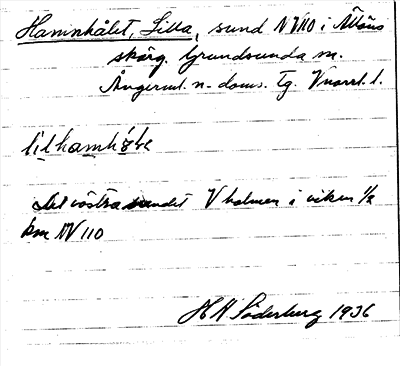 Hamnhålet, Lilla, sund NV 110 i Ållöns
skärg. Grundsunda sn.
Ångerml. n. doms. tg. Vnorrl. l.
lilhamhǫ́le
Det västra sundet V holmen i viken 1/2
km NV 110
H K Söderburg 1936